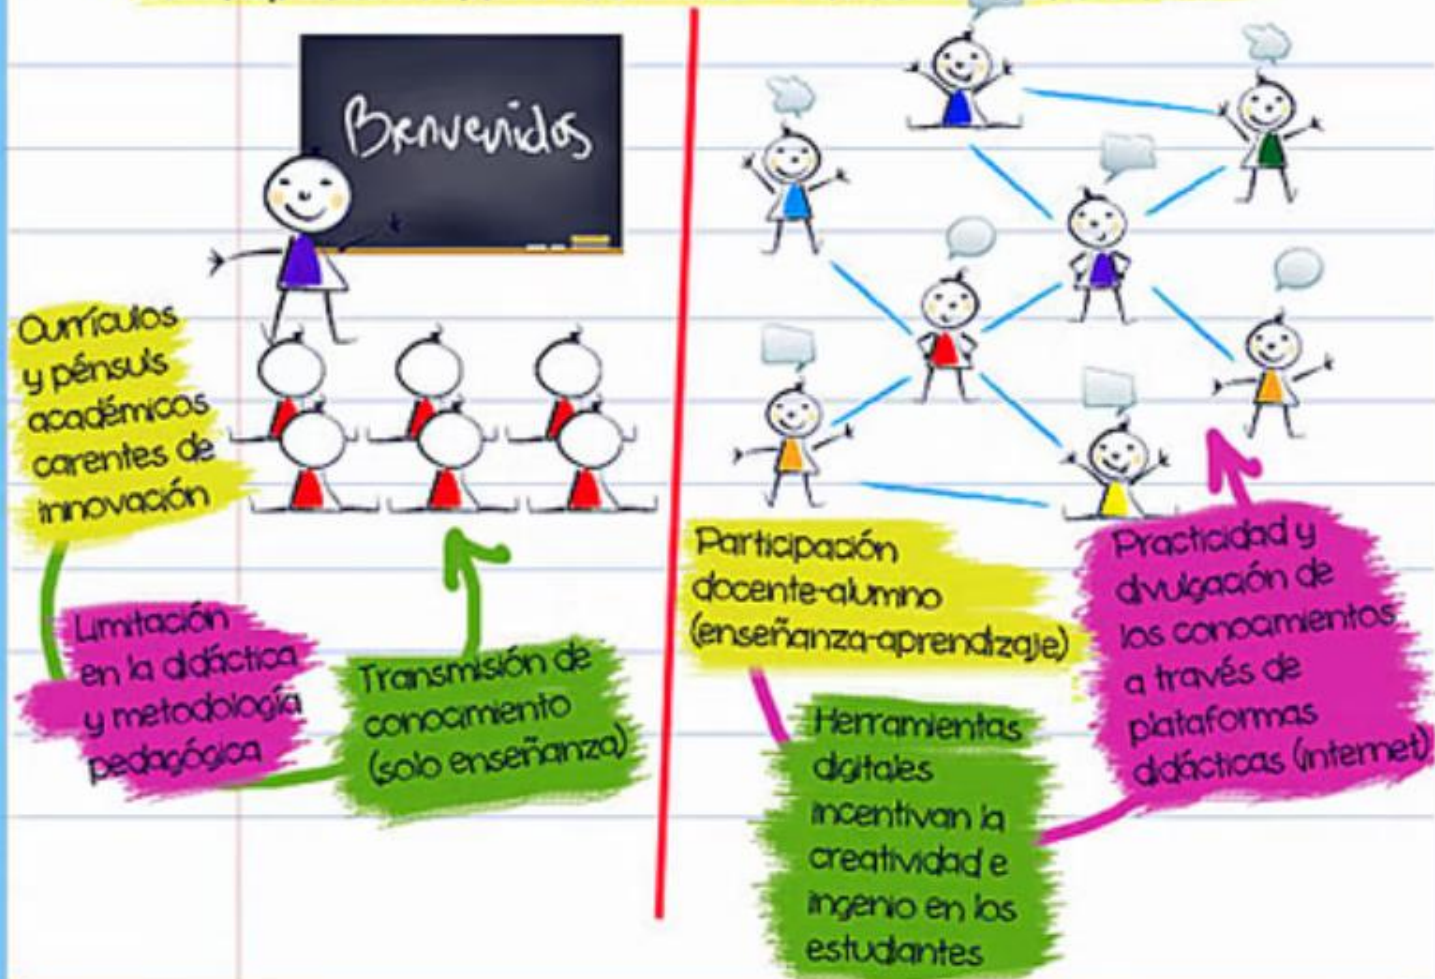 Bienvenidos
Currículos
y pénsuls
académicos
carentes de
innovación
Limitación
en la didáctica
y metodología
pedagógica
Transmisión de
conocimiento
(solo enseñanza)
Participación
docente-alumno
(enseñanza-aprendizaje)
Herramientas
digitales
incentivan la
creatividad e
ingenio en los
estudiantes
Practicidad y
divulgación de
los conocimientos
a través de
plataformas
didácticas (internet)